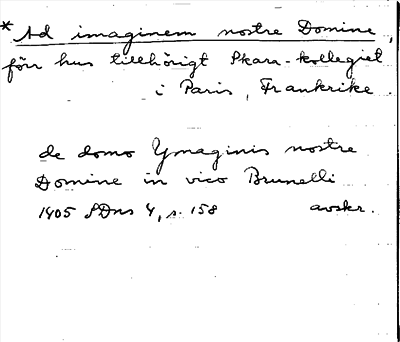 * Ad imaginem nostre Domine,
förr hus tillhörigt Skara-kollegiet
i Paris, Frankrike.
de domo Ymaginis nostre
Domine in vico Brunelli
1405 SDns 4, s. 158 avskr.